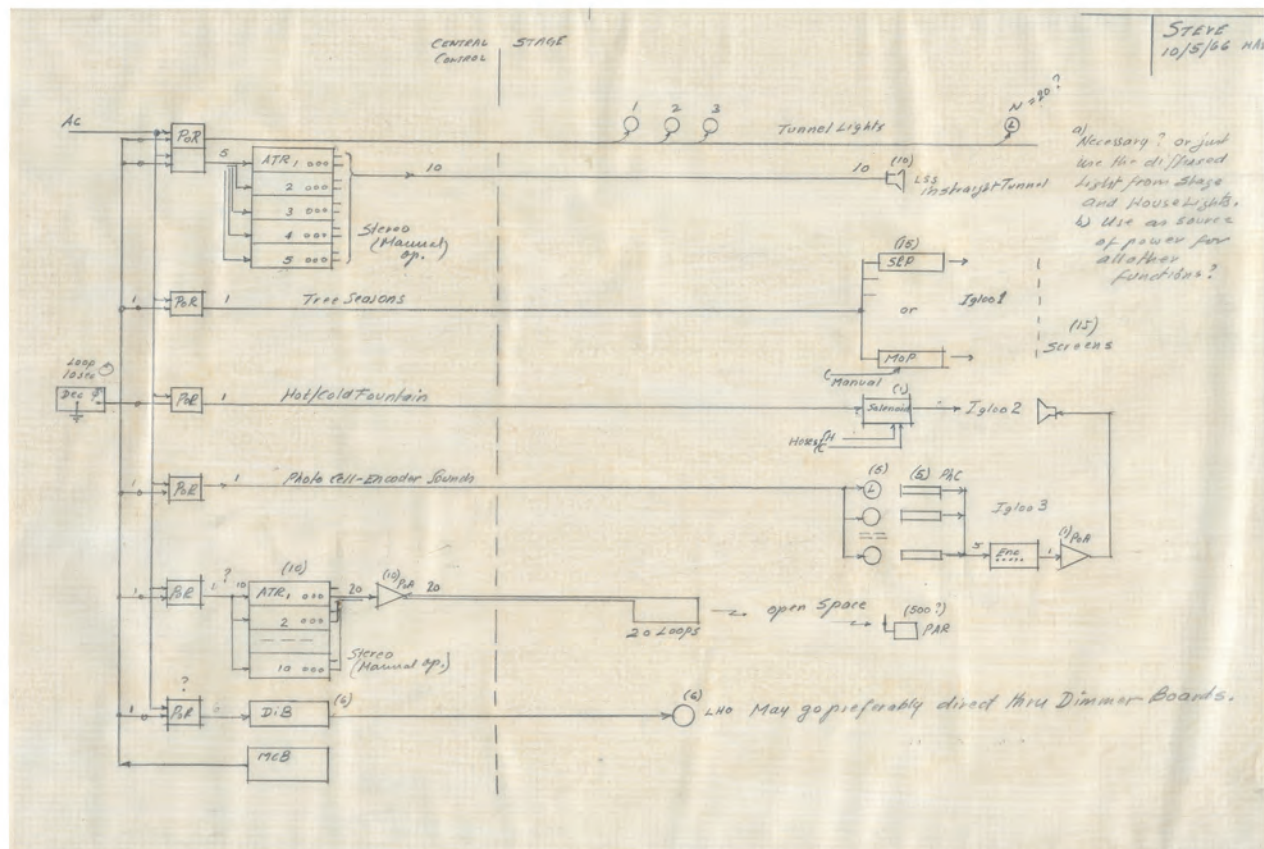 STEVE
10/5/66
CENTRAL CONTROL
STAGE
AC
PoR
1 2 3
Tunnel Lights
N = 20 ?
L
a) Necessary ? or just
use the diffused
Light from Stage
and House Lights.
b) Use as source
of power for
all other
functions ?
5
ATR 1
2
3
4
5
Stereo
(Manual
op.)
10
10
(10)
LSS
in straight Tunnel
1
PoR
1
Tree Seasons
(15)
SLP
or
MoP
Manual
Igloo 1
(15)
Screens
Loop
10 sec
Dec
PoR
1
Hot/Cold Fountain
(1)
Solenoid
Hoses H
C
Igloo 2
1
PoR
1
Photo Cell-Encoder Sounds
(5)
L
(5) PhC
Igloo 3
5
Enc
1
(1) PoA
1
PoR
1 ?
10
(10)
ATR 1
2
10
Stereo
(Manual op.)
20
(10) PoA
20
20 Loops
open Space
(500 ?)
PAR
?
1
PoR
DiB
(6)
(6)
LHO May go preferably direct thru Dimmer Boards.
MCB